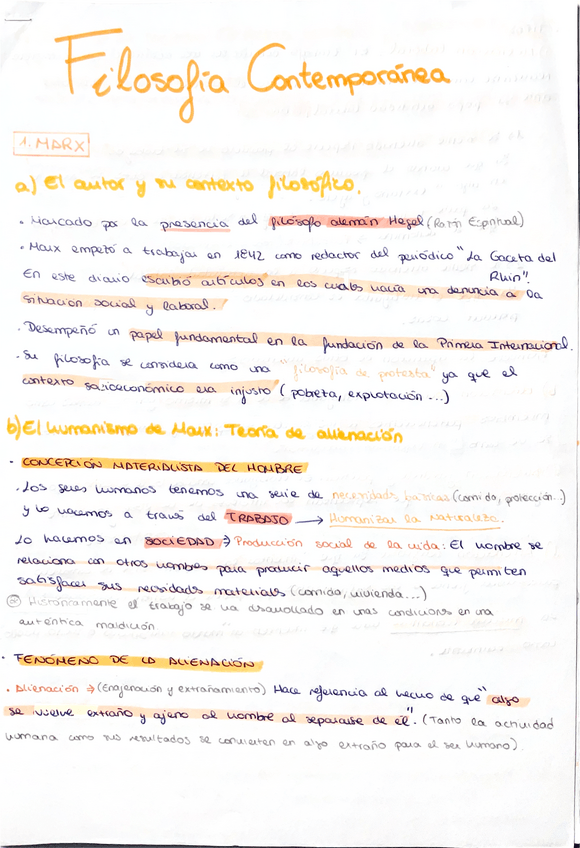 Filosofía Contemporánea
1. MARX
a) El autor y su contexto filosófico.
· Marcado por la presencia del filósofo alemán Hegel (Razón Espiritual)
· Marx empezó a trabajar en 1842 como redactor del periódico "La Gaceta del
Rhin".
En este diario escribió artículos en los cuales hacía una denuncia a la
situación social y laboral.
· Desempeñó un papel fundamental en la fundación de la Primera Internacional.
· Su filosofía se considera como una "filosofía de protesta" ya que el
contexto socioeconómico era injusto (pobreza, explotación ...)
b) El humanismo de Marx: Teoría de alienación
· CONCEPCIÓN MATERIALISTA DEL HOMBRE
· Los seres humanos tenemos una serie de necesidades básicas (comida, protección...)
y lo hacemos a través del TRABAJO → Humanizar la Naturaleza.
Lo hacemos en SOCIEDAD → Producción social de la vida: El hombre se
relaciona con otros hombres para producir aquellos medios que permiten
satisfacer sus necesidades materiales (comida, vivienda...)
Históricamente el trabajo se ha desarrollado en unas condiciones en una
auténtica maldición
· FENÓMENO DE LA ALIENACIÓN
· Alienación → (Enajenación y extrañamiento) Hace referencia al hecho de que "algo
se vuelve extraño y ajeno al hombre al separarse de él". (Tanto la actividad
humana como sus resultados se convierten en algo extraño para el ser humano).